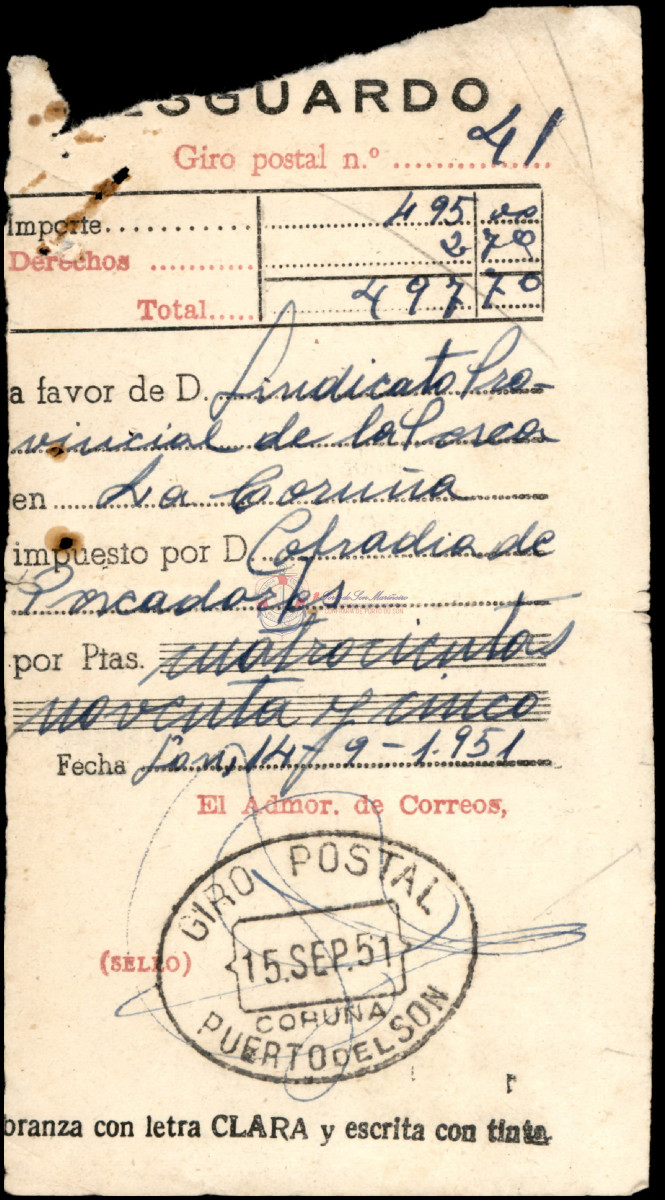 ESGUARDO
Giro postal n.º 41
Importe 495 00
Derechos 2 70
Total 497 70
a favor de D. Sindicato Pro-
vincial de la Pesca
en La Coruña
impuesto por D. Cofradia de
Pescadores
por Ptas. cuatrocientas
noventa y cinco
Fecha Son, 14-9-1.951
El Admor. de Correos,
GIRO POSTAL
15.SEP.51
(SELLO)
CORUÑA
PUERTO DEL SON
branza con letra CLARA y escrita con tinta